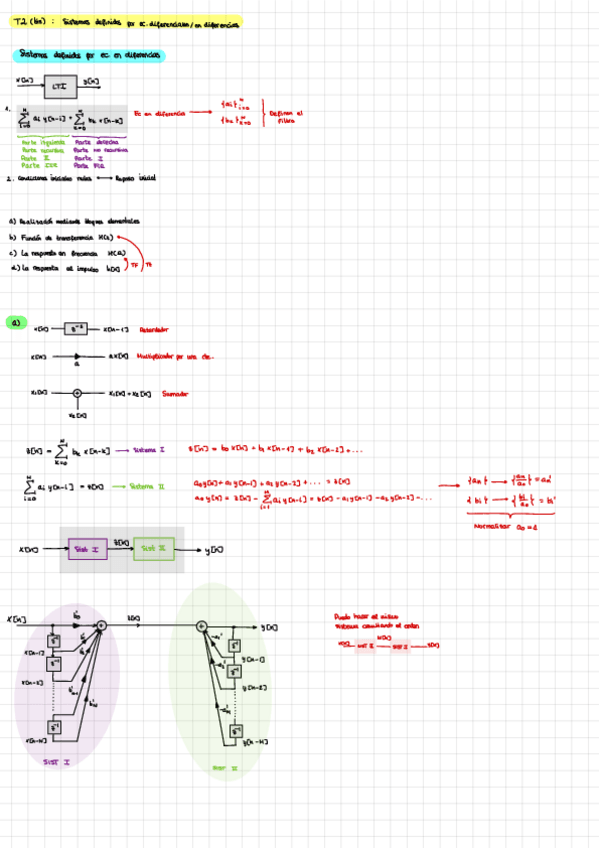 T.2 (bis) : Sistemas definidos por ec. diferenciales / en diferencias
Sistemas definidos por ec en diferencias
x[n] LTI y[n]
1. Σ ai y[n-i] = Σ bk x[n-k] Ec en diferencia {ai} {bk} Definen el filtro
Parte izquierda Parte derecha
Parte recursiva Parte no recursiva
Parte II Parte I
Parte IIR Parte FIR
2. Condiciones iniciales nulas ⟷ Reposo inicial
a) Realización mediante bloques elementales
b) Función de transferencia H(z)
c) La respuesta en frecuencia H(Ω)
d) La respuesta al impulso h[n] TF TZ
a)
x[n] z⁻¹ x[n-1] Retardador
x[n] a ax[n] Multiplicador por una cte.
x1[n] + x1[n]+x2[n] Sumador
x2[n]
z[n] = Σ bk x[n-k] → Sistema I z[n] = b0 x[n] + b1 x[n-1] + b2 x[n-2] + ...
Σ ai y[n-i] = z[n] → Sistema II a0 y[n] + a1 y[n-1] + a2 y[n-2] + ... = z[n]
a0 y[n] = z[n] - Σ ai y[n-i] = z[n] - a1 y[n-1] - a2 y[n-2] - ...
{an} → {an/a0} = an'
{bi} → {bi/a0} = bi'
Normalizar a0 = 1
x[n] Sist I z[n] Sist II y[n]
x[n] b0' z[n] y[n]
z⁻¹ z⁻¹
x[n-1] y[n-1]
z⁻¹ z⁻¹
y[n-2]
z⁻¹ z⁻¹
x[n-M] y[n-N]
SIST I SIST II
Puedo hacer el mismo
sistema cambiando el orden
x[n] SIST II SIST I y[n]